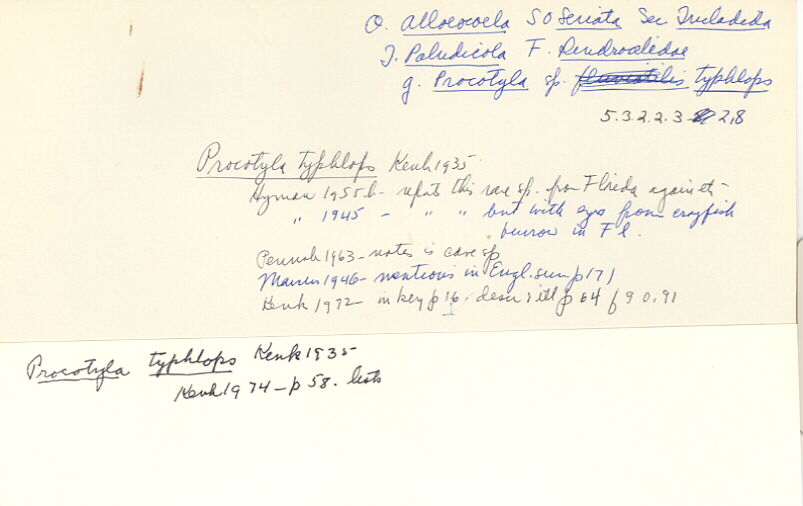 O. Alloeocoela SO Seriata Sec Tricladida
T. Paludicola F. Dendrocoelidae
g. Procotyla sp. fluviatilis typhlops
5.3.2.2.3 2,8
Procotyla typhlops Kenk 1935
Hyman 1955b - this rare sp. from Florida again
" 1945 - " " but with eyes from crayfish
burrow in Fl.
Pennak 1963 - notes is cave sp
Marcus 1946 - mentions in Engl. sum p 171
Kenk 1972 - in key p 16, descr & ill p 64 f 90,91
Procotyla typhlops Kenk 1935
Kenk 1974 - p 58. lists